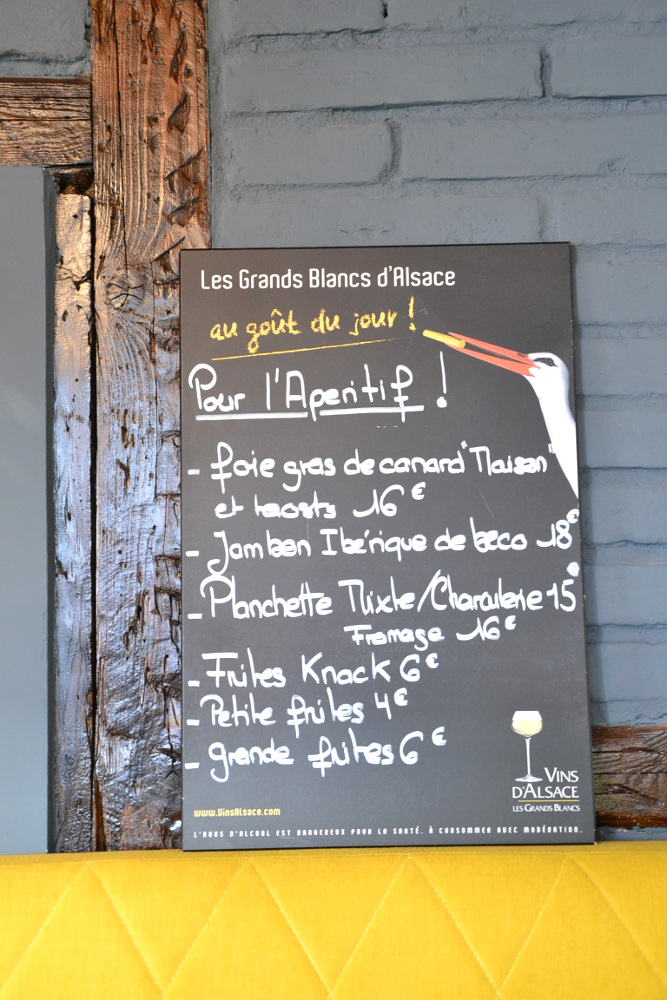 Les Grands Blancs d'Alsace
au goût du jour !
Pour l'Aperitif !
- foie gras de canard "Maison"
et toasts 16€
- Jambon Ibérique de beco 18€
- Planchette Mixte/Charcuterie 15€
Fromage 16€
- Frites Knack 6€
- Petite frites 4€
- grande frites 6€
VINS
D'ALSACE
LES GRANDS BLANCS
www.VinsAlsace.com
L'ABUS D'ALCOOL EST DANGEREUX POUR LA SANTÉ. À CONSOMMER AVEC MODÉRATION.